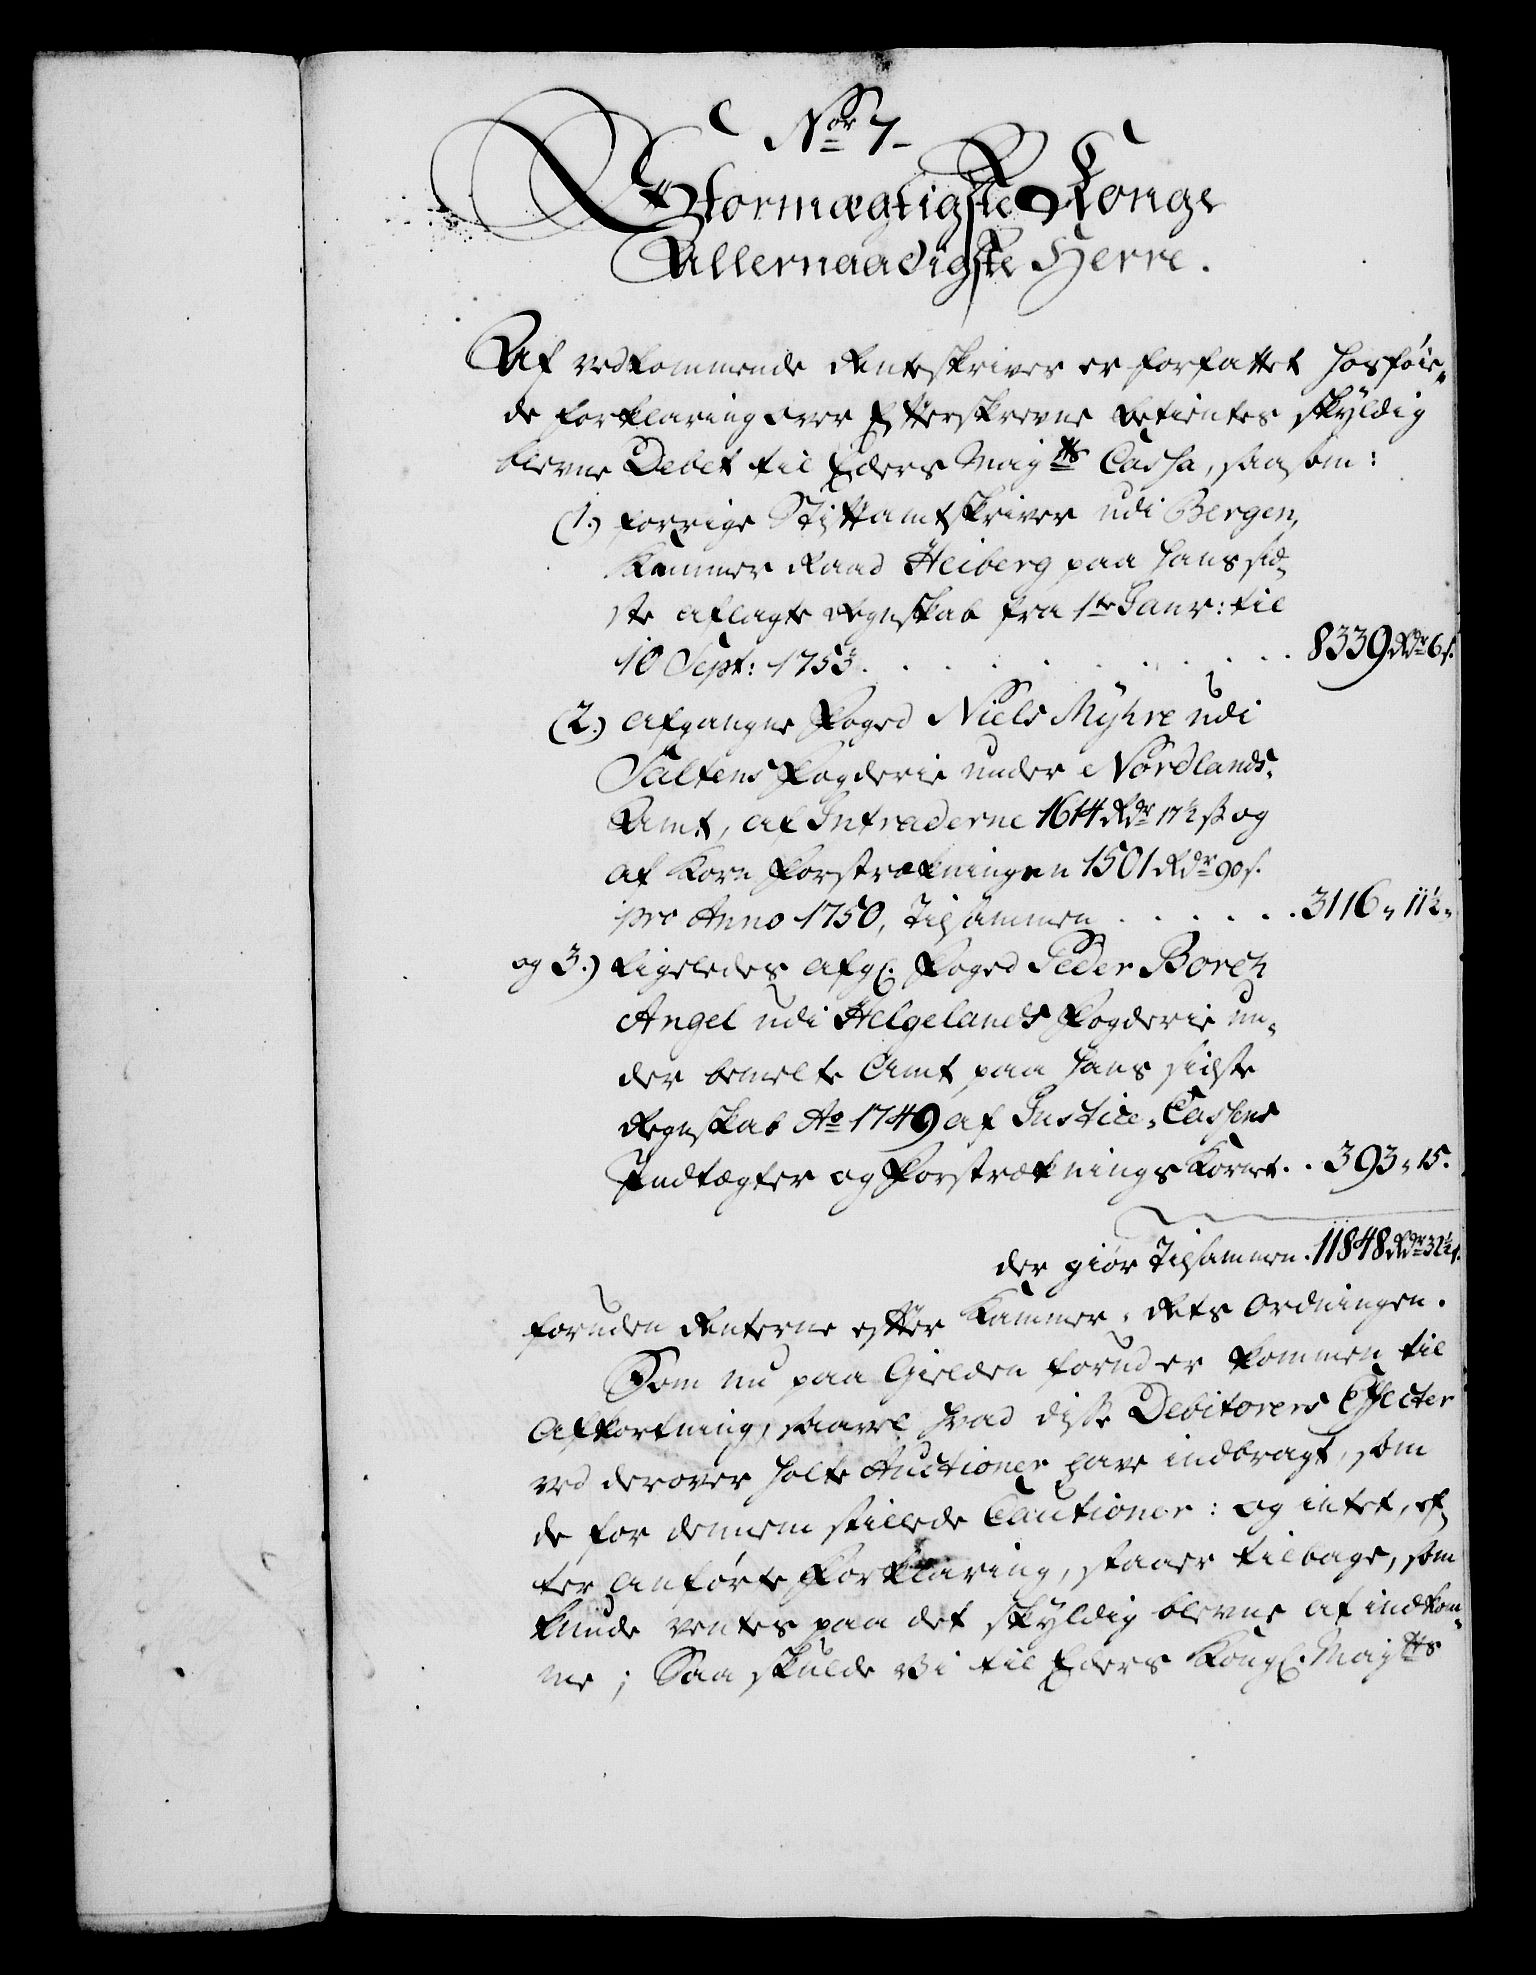 No 7
Stormægtigste Konge
Allernaadigste Herre.
Af vedkommende Renteskriver er forfattet hosføie„
de forklaring over Efterskrevne Betientes skyldig
blevne Debet til Eders Mayts Cassa, saasom:
(1.) forrige Stiftamtskriver udi Bergen,
Kammer Raad Heiberg paa hans sid„
ste aflagte Regnskab fra 1te Janr: til
10 Sept: 1753. . . . . . . . . 8339 Rdr 6 s.
(2.) afgangne Foged Niels Myhre udi
Saltens Fogderie under Nordlands„
Amt, af Intraderne 1614 Rdr 17½ s og
af Korn Forstrækningen 1501 Rdr 90 s.
pro Anno 1750, Tilsammen . . . . . . 3116 „ 11½ „
og 3.) Ligeledes afg. Foged Peder Borch
Angel udi Helgelands Fogderie un„
der bemelte Amt, paa hans sidste
Regnskab Ao 1749 af Justice„Cassens
Indtægter og Forstræknings Kornet . . 393 „ 15.
der giør Tilsammen . 11848 Rdr 32½ s.
foruden Renterne efter Kammer„Rets Ordningen.
Som nu paa Gielden forud er kommen til
Afkortning, saavel hvad disse Debitorers Effecter
ved derover holte Auctioner have indbragt, som
de for dennem stillede Cautioner: og intet, ef„
ter anførte Forklaring, staaer tilbage, som
kunde ventes paa det skyldig blevne at indkom„
me; Saa skulde Vi til Eders Kongl. Mayts